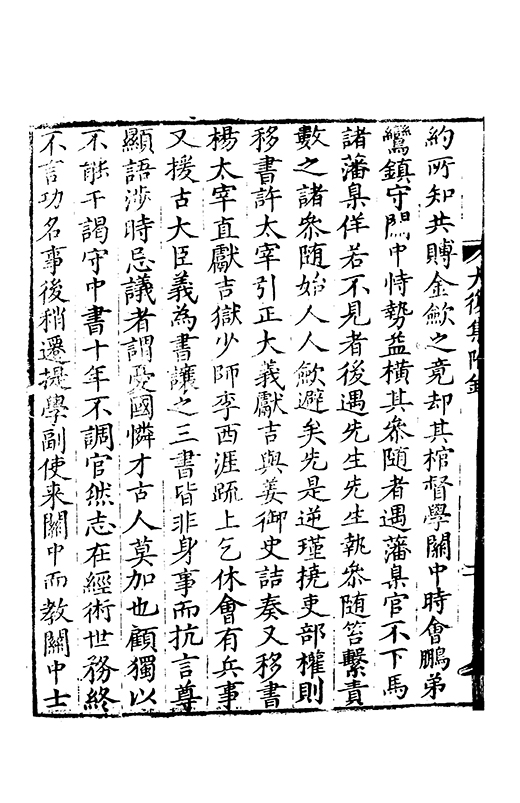 大復集附錄
約所知共賻金歛之竟却其棺督學關中時會鵬弟
鸞鎮守關中恃勢益橫其叅隨者遇藩臬官不下馬
諸藩臬佯若不見者後遇先生先生執叅隨笞繫責
數之諸叅隨始人人歛避矣先是逆瑾撓吏部權則
移書許太宰引正大義獻吉與姜御史詰奏又移書
楊太宰直獻吉獄少師李西涯疏上乞休會有兵事
又援古大臣義為書讓之三書皆非身事而抗言尊
顯語涉時忌議者謂憂國憐才古人莫加也顧獨以
不能干謁守中書十年不調官然志在經術世務終
不言功名事後稍遷提學副使来關中而教關中士